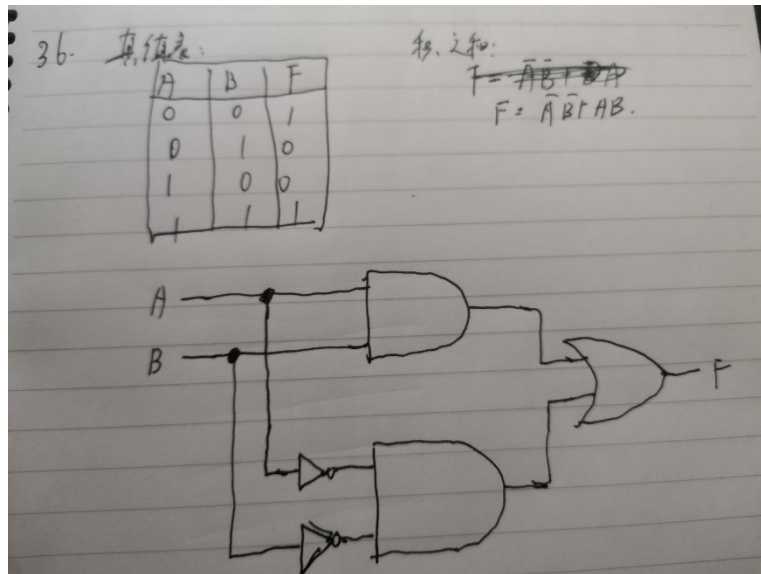 36. 真值表:
A B F
0 0 1
0 1 0
1 0 0
1 1 1
积之和:
F = A̅B̅ + AB.
A
B
F